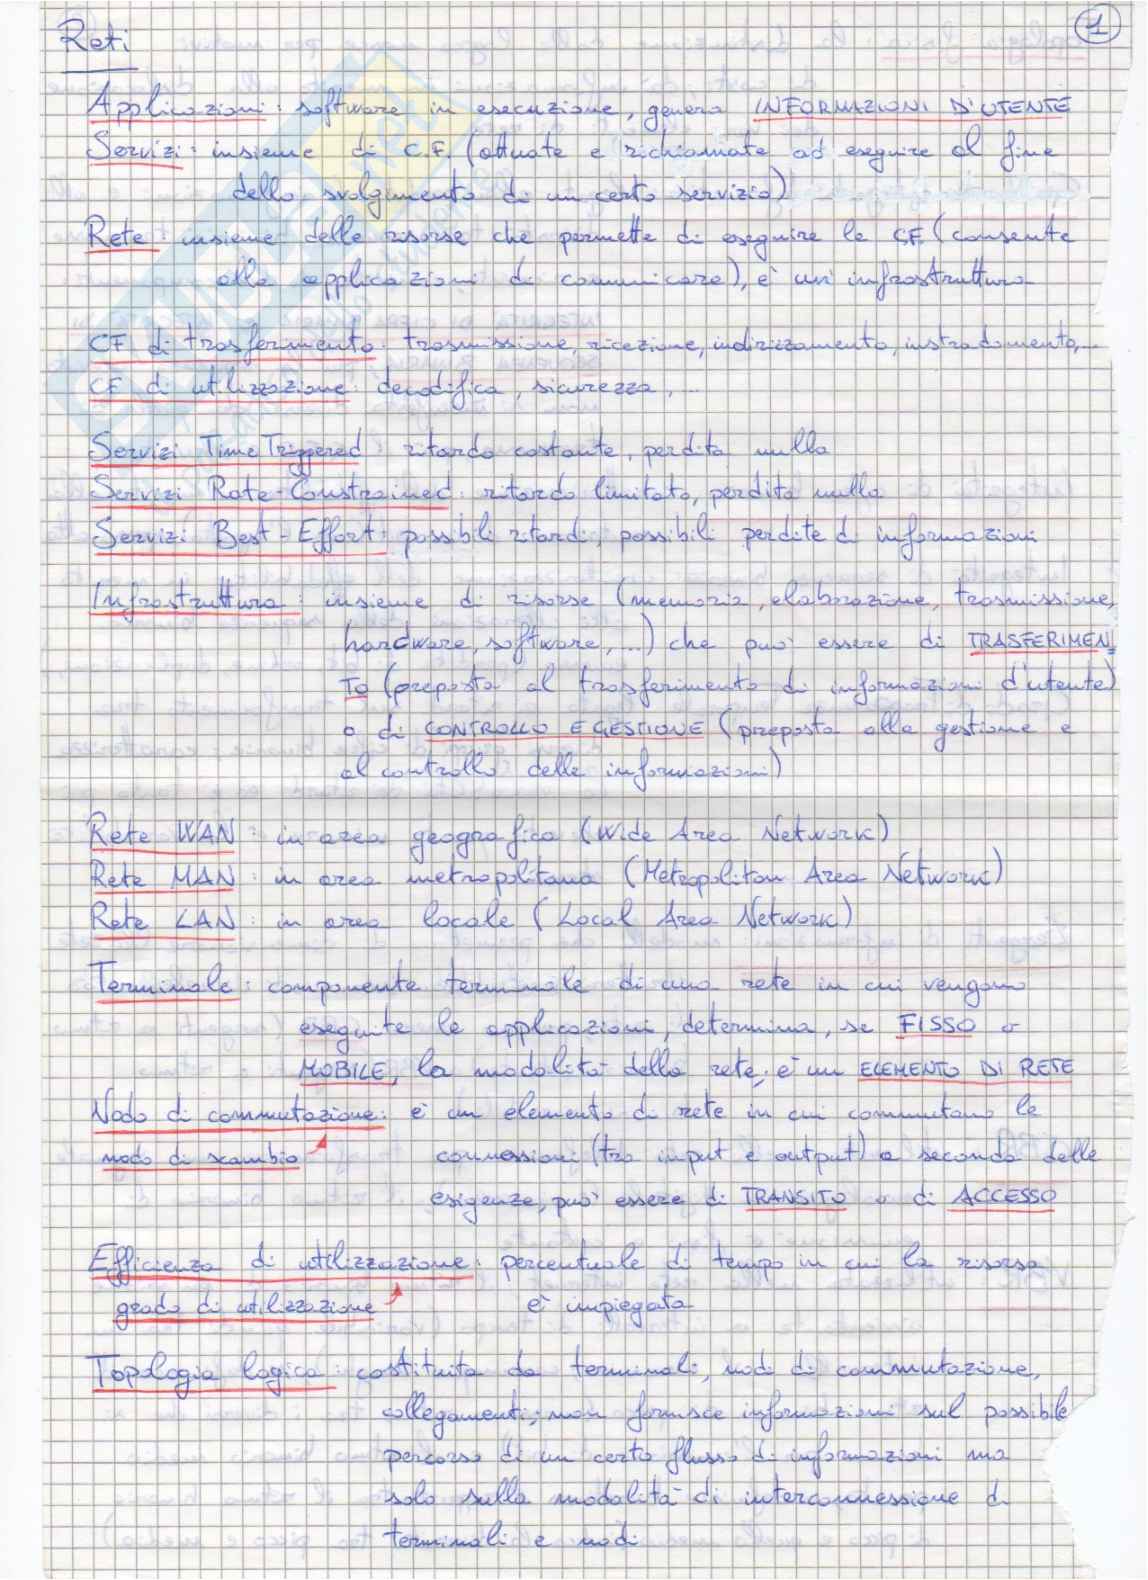 1
Reti
Applicazioni: software in esecuzione, genera INFORMAZIONI D'UTENTE
Servizi: insieme di C.F. (attuate e richiamate ad eseguire al fine
dello svolgimento di un certo servizio)
Rete: insieme delle risorse che permette di eseguire le CF (consente
alle applicazioni di comunicare), è un'infrastruttura
CF di trasferimento: trasmissione, ricezione, indirizzamento, instradamento,...
CF di utilizzazione: decodifica, sicurezza,...
Servizi Time Triggered: ritardo costante, perdita nulla
Servizi Rate-Constrained: ritardo limitato, perdita nulla
Servizi Best-Effort: possibili ritardi, possibili perdite di informazioni
Infrastruttura: insieme di risorse (memoria, elaborazione, trasmissione,
hardware, software,...) che può essere di TRASFERIMEN=
TO (preposta al trasferimento di informazioni d'utente)
o di CONTROLLO E GESTIONE (preposta alla gestione e
al controllo delle informazioni)
Rete WAN: in area geografica (Wide Area Network)
Rete MAN: in area metropolitana (Metropolitan Area Network)
Rete LAN: in area locale (Local Area Network)
Terminale: componente terminale di una rete in cui vengono
eseguite le applicazioni, determina, se FISSO o
MOBILE, la modalità della rete; è un ELEMENTO DI RETE
Nodo di commutazione: è un elemento di rete in cui commutano le
nodo di scambio connessioni (tra input e output) a seconda delle
esigenze, può essere di TRANSITO o di ACCESSO
Efficienza di utilizzazione: percentuale di tempo in cui la risorsa
grado di utilizzazione è impiegata
Topologia logica: costituita da terminali, nodi di commutazione,
collegamenti; non fornisce informazioni sul possibile
percorso di un certo flusso di informazioni ma
solo sulla modalità di interconnessione di
terminali e nodi